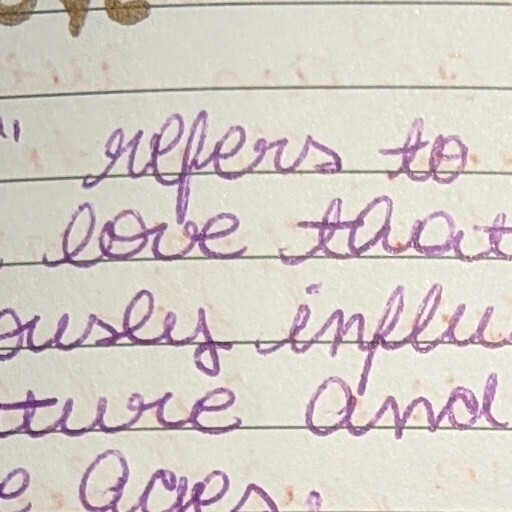 " refers to
love that
ously influ
ture and
e Ages.